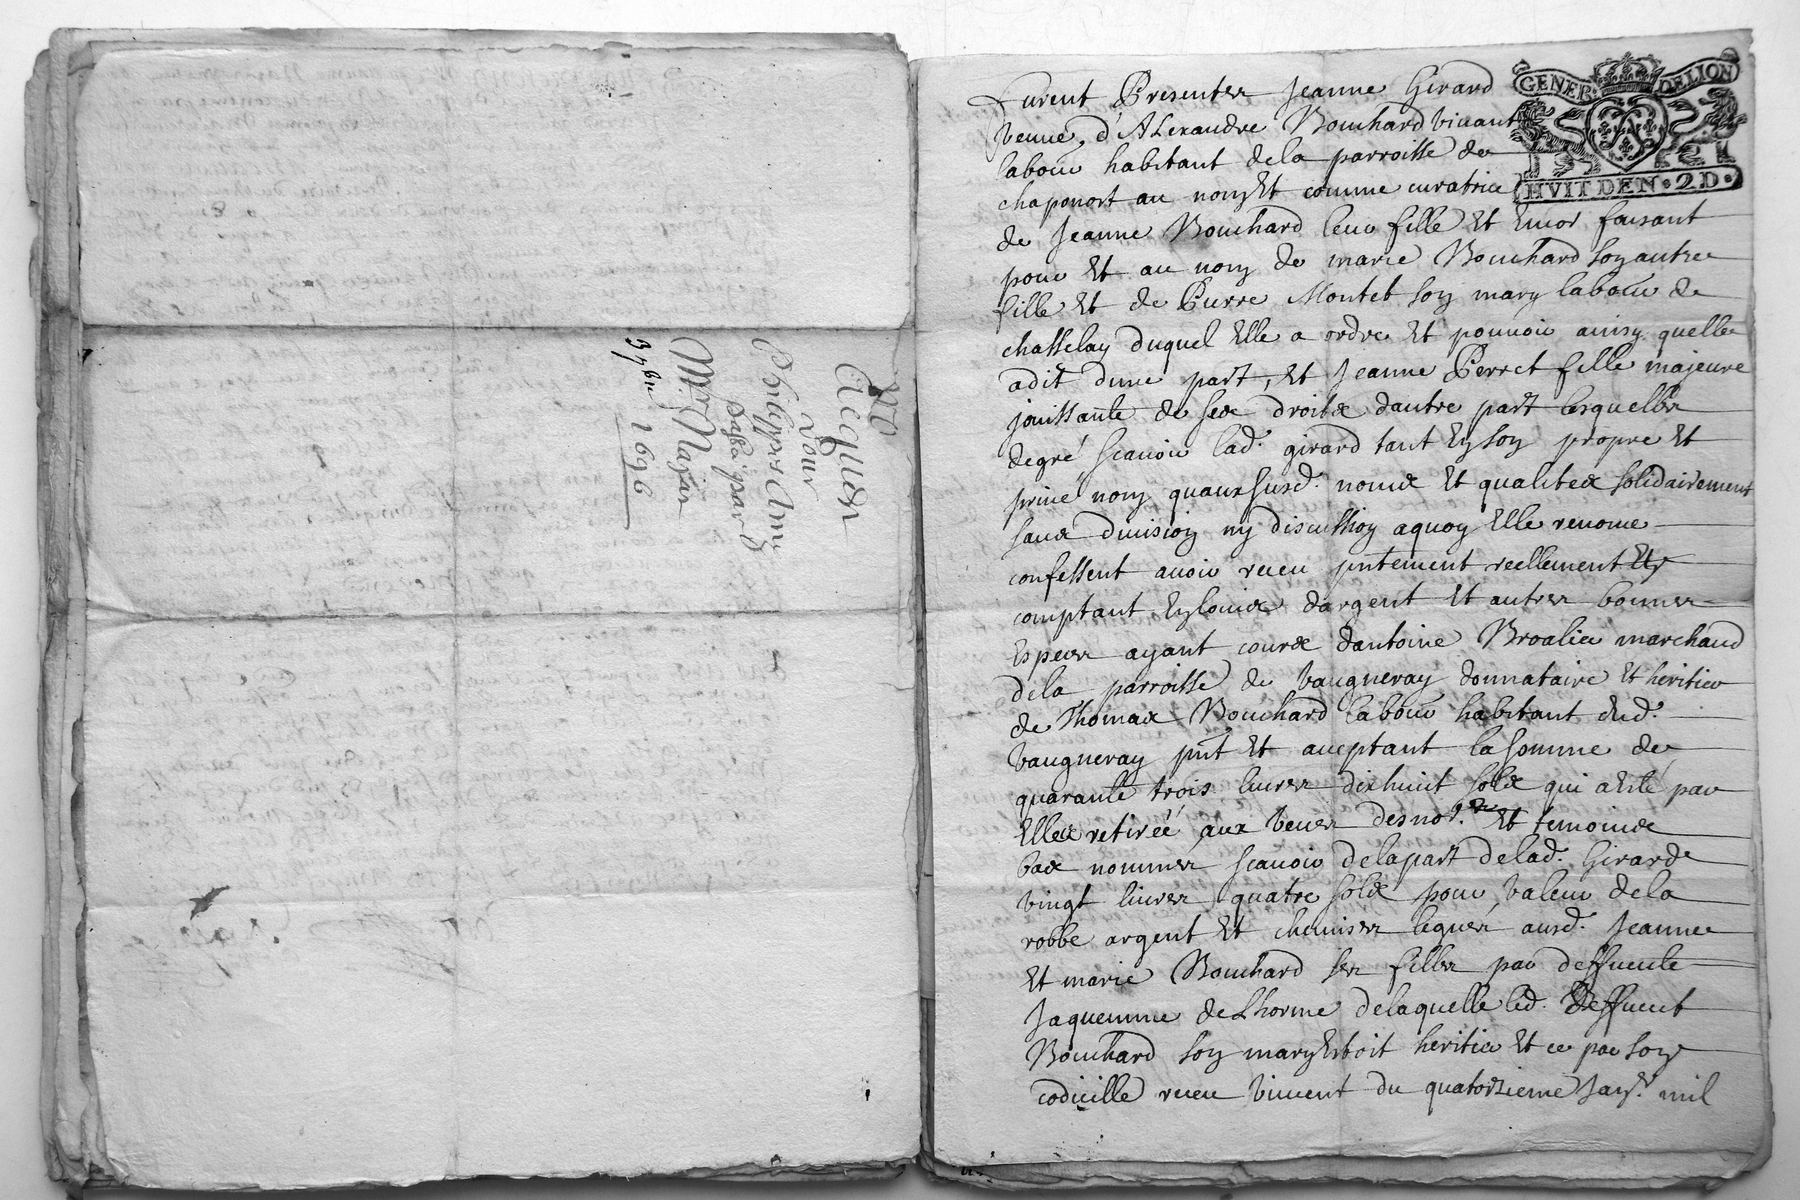 Acquis
Pour
Philippes Amy
Passé par
Me Nazar
3 7bre 1696
GENER DE LION
HVIT DEN 2D
Furent Presentes Jeanne Girard
veuve d'Alexandre Bouchard vivant
labour habitant dela parroisse de
chaponost au nom Et comme curatrice
de Jeanne Bouchard leur fille Et Encor faisant
pour Et au nom de marie Bouchard son autre
fille Et de Pierre Montet son mary labour de
chasselay duquel Elle a ordre Et pouvoir ainsy quelle
a dit dune part, Et Jeanne Perret fille majeure
jouissante de ses droits dautre part lesquelles
de gré scavoir lad. girard tant En son propre Et
privé nom quaux susd. noms Et qualites solidairement
sans division ny discussion a quoy Elle renonce
confessent avoir receu pntement reellement Et
comptant En louis dargent Et autres bonnes
Especes ayant cours dantoine Broalier marchand
dela parroisse de vaugneray donnataire Et heritier
de Thomas Bouchard labour habitant dud.
vaugneray pnt Et acceptant la somme de
quarante trois livres dixhuit sols qui a Esté par
Elles retirée aux veues des not. Et temoins
bas nommés scavoir de la part de lad. Girard
vingt livres quatre sols pour valeur dela
robbe argent Et chemises legués ausd. Jeanne
Et marie Bouchard ses filles par deffuente
Jaquemme de Lhorme de laquelle led. deffuent
Bouchard son mary Estoit heritier Et ce par son
codicille receu vincent du quatorzieme Janr. mil